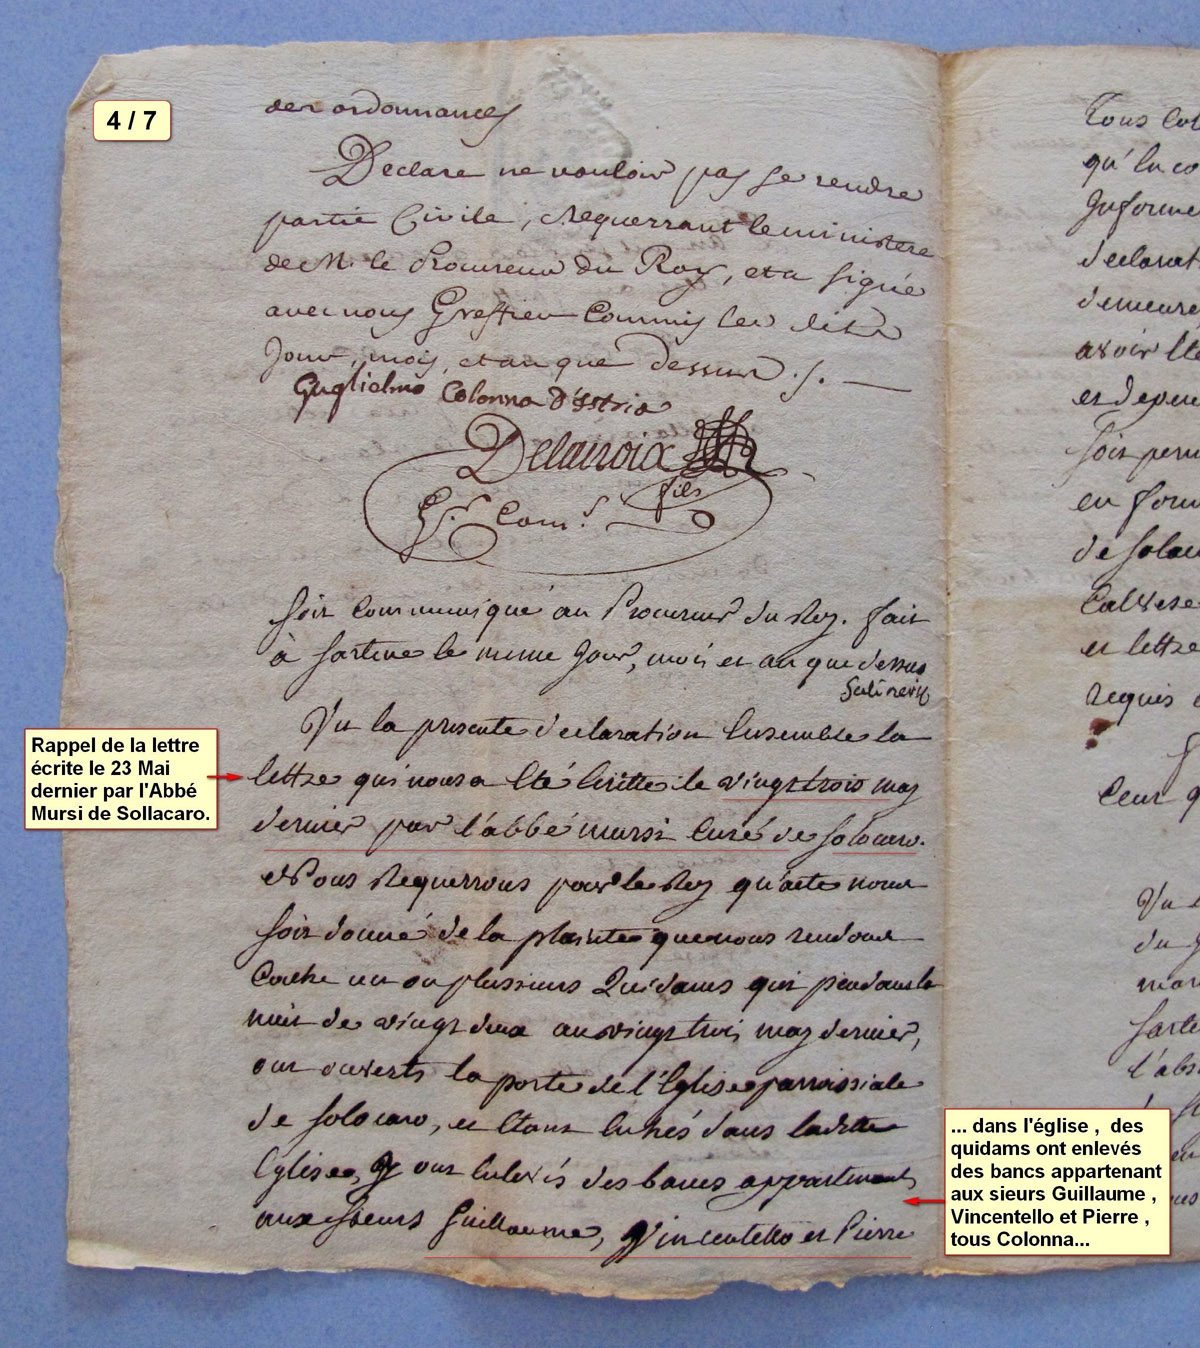 4 / 7
des ordonnances
Declare ne vouloir pas se rendre
partie Civile, Requerrant le ministere
de M. le Procureur du Roy, et a signé
avec nous Greffier Commis les dits
Jour, mois, et an que dessus ./.
Guglielmo Colonna D'Istria
Delacroix
fils
Gr. Com.s
soit communiqué au Procureur du Roy. fait
à Sartene le meme Jour, mois et an que dessus
Vu la presente declaration Ensemble la
lettre qui nous a Eté Ecritte le vingt trois may
dernier par l'abbé mursi Curé de Solocaro.
Nous Requerrons pour le Roy qu'acte nous
soit donné de la plainte que nous rendons
Contre un ou plusieurs Quidams qui pendant la
nuit de vingt deux au vingt trois may dernier,
ont ouverts la porte de l'Eglise parroissiale
de Solocaro, et Etant Entrés dans laditte
Eglise, y ont Enlevés des bancs appartenants
aux sieurs Guillaume, Vincentello et Pierre
Rappel de la lettre
écrite le 23 Mai
dernier par l'Abbé
Mursi de Sollacaro.
... dans l'église , des
quidams ont enlevés
des bancs appartenant
aux sieurs Guillaume ,
Vincentello et Pierre ,
tous Colonna...
Tous
qu'
Informe
declarat
demeure
avoir Ete
et
soit
en
de
et lettre
requis
Vu
du
l'abs